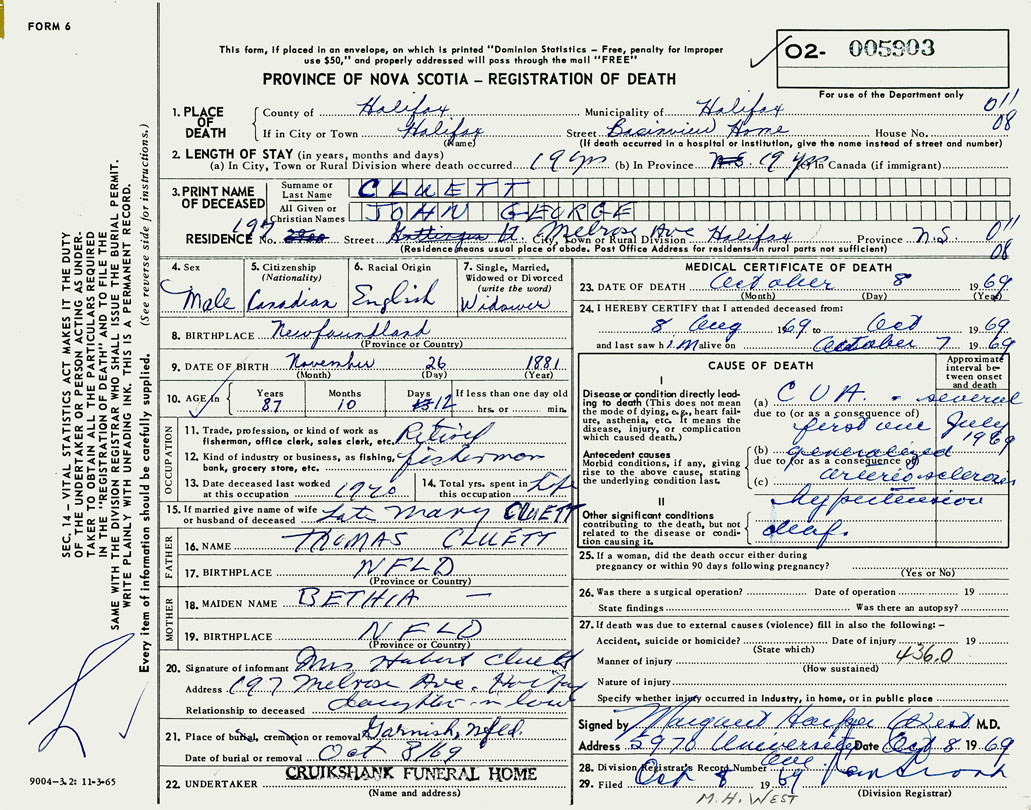 FORM 6
This form, if placed in an envelope, on which is printed "Dominion Statistics – Free, penalty for improper
use $50," and properly addressed will pass through the mail "FREE"
PROVINCE OF NOVA SCOTIA – REGISTRATION OF DEATH
02- 005903
For use of the Department only
SEC. 14 – VITAL STATISTICS ACT MAKES IT THE DUTY
OF THE UNDERTAKER OR PERSON ACTING AS UNDER-
TAKER TO OBTAIN ALL THE PARTICULARS REQUIRED
IN THE "REGISTRATION OF DEATH" AND TO FILE THE
SAME WITH THE DIVISION REGISTRAR WHO SHALL ISSUE THE BURIAL PERMIT.
WRITE PLAINLY WITH UNFADING INK. THIS IS A PERMANENT RECORD.
Every item of information should be carefully supplied. (See reverse side for instructions.)
1. PLACE OF DEATH
County of Halifax Municipality of Halifax 011
If in City or Town Halifax Street Basinview Home House No. 08
(Name) (If death occurred in a hospital or institution, give the name instead of street and number)
2. LENGTH OF STAY (in years, months and days)
(a) In City, Town or Rural Division where death occurred 19 yrs (b) In Province N.S. 19 yrs (c) In Canada (if immigrant)
3. PRINT NAME OF DECEASED
Surname or Last Name CLUETT
All Given or Christian Names JOHN GEORGE
RESIDENCE No. 197 Street Melrose Ave City, Town or Rural Division Halifax Province N.S. 011
(Residence means usual place of abode. Post Office Address for residents in rural parts not sufficient) 08
4. Sex Male
5. Citizenship (Nationality) Canadian
6. Racial Origin English
7. Single, Married, Widowed or Divorced (write the word) Widower
8. BIRTHPLACE Newfoundland
(Province or Country)
9. DATE OF BIRTH November 26 1881
(Month) (Day) (Year)
10. AGE in Years 87 Months 10 Days 12 If less than one day old hrs. or min.
OCCUPATION
11. Trade, profession, or kind of work as fisherman, office clerk, sales clerk, etc. Retired
12. Kind of industry or business, as fishing, bank, grocery store, etc. fisherman
13. Date deceased last worked at this occupation 1920
14. Total yrs. spent in this occupation
15. If married give name of wife or husband of deceased Late Mary CLUETT
FATHER
16. NAME THOMAS CLUETT
17. BIRTHPLACE NFLD
(Province or Country)
MOTHER
18. MAIDEN NAME BETHIA –
19. BIRTHPLACE NFLD
(Province or Country)
20. Signature of informant Mrs Hubert Cluett
Address 197 Melrose Ave. Halifax
Relationship to deceased daughter in law
21. Place of burial, cremation or removal Garnish, Nfld.
Date of burial or removal Oct 8/69
22. UNDERTAKER CRUIKSHANK FUNERAL HOME
(Name and address)
9004–3.2: 11-3-65
MEDICAL CERTIFICATE OF DEATH
23. DATE OF DEATH October 8 1969
(Month) (Day) (Year)
24. I HEREBY CERTIFY that I attended deceased from:
8 Aug 1969 to Oct 1969
and last saw him alive on October 7 1969
CAUSE OF DEATH
Approximate interval between onset and death
I
Disease or condition directly leading to death (This does not mean the mode of dying, e.g., heart failure, asthenia, etc. It means the disease, injury, or complication which caused death.)
(a) C V A. - several
due to (or as a consequence of)
first one July 1969
Antecedent causes
Morbid conditions, if any, giving rise to the above cause, stating the underlying condition last.
(b) generalized
due to (or as a consequence of)
(c) arteriosclerosis
II
Other significant conditions contributing to the death, but not related to the disease or condition causing it.
hypertension
deaf.
25. If a woman, did the death occur either during pregnancy or within 90 days following pregnancy?
(Yes or No)
26. Was there a surgical operation? Date of operation 19
State findings Was there an autopsy?
27. If death was due to external causes (violence) fill in also the following: –
Accident, suicide or homicide? Date of injury 19
(State which)
Manner of injury 436.0
(How sustained)
Nature of injury
Specify whether injury occurred in industry, in home, or in public place
Signed by Margaret West M.D.
Address 5970 University Ave Date Oct 8 1969
28. Division Registrar's Record Number
29. Filed Oct 8 1969
(Division Registrar)
M. H. WEST